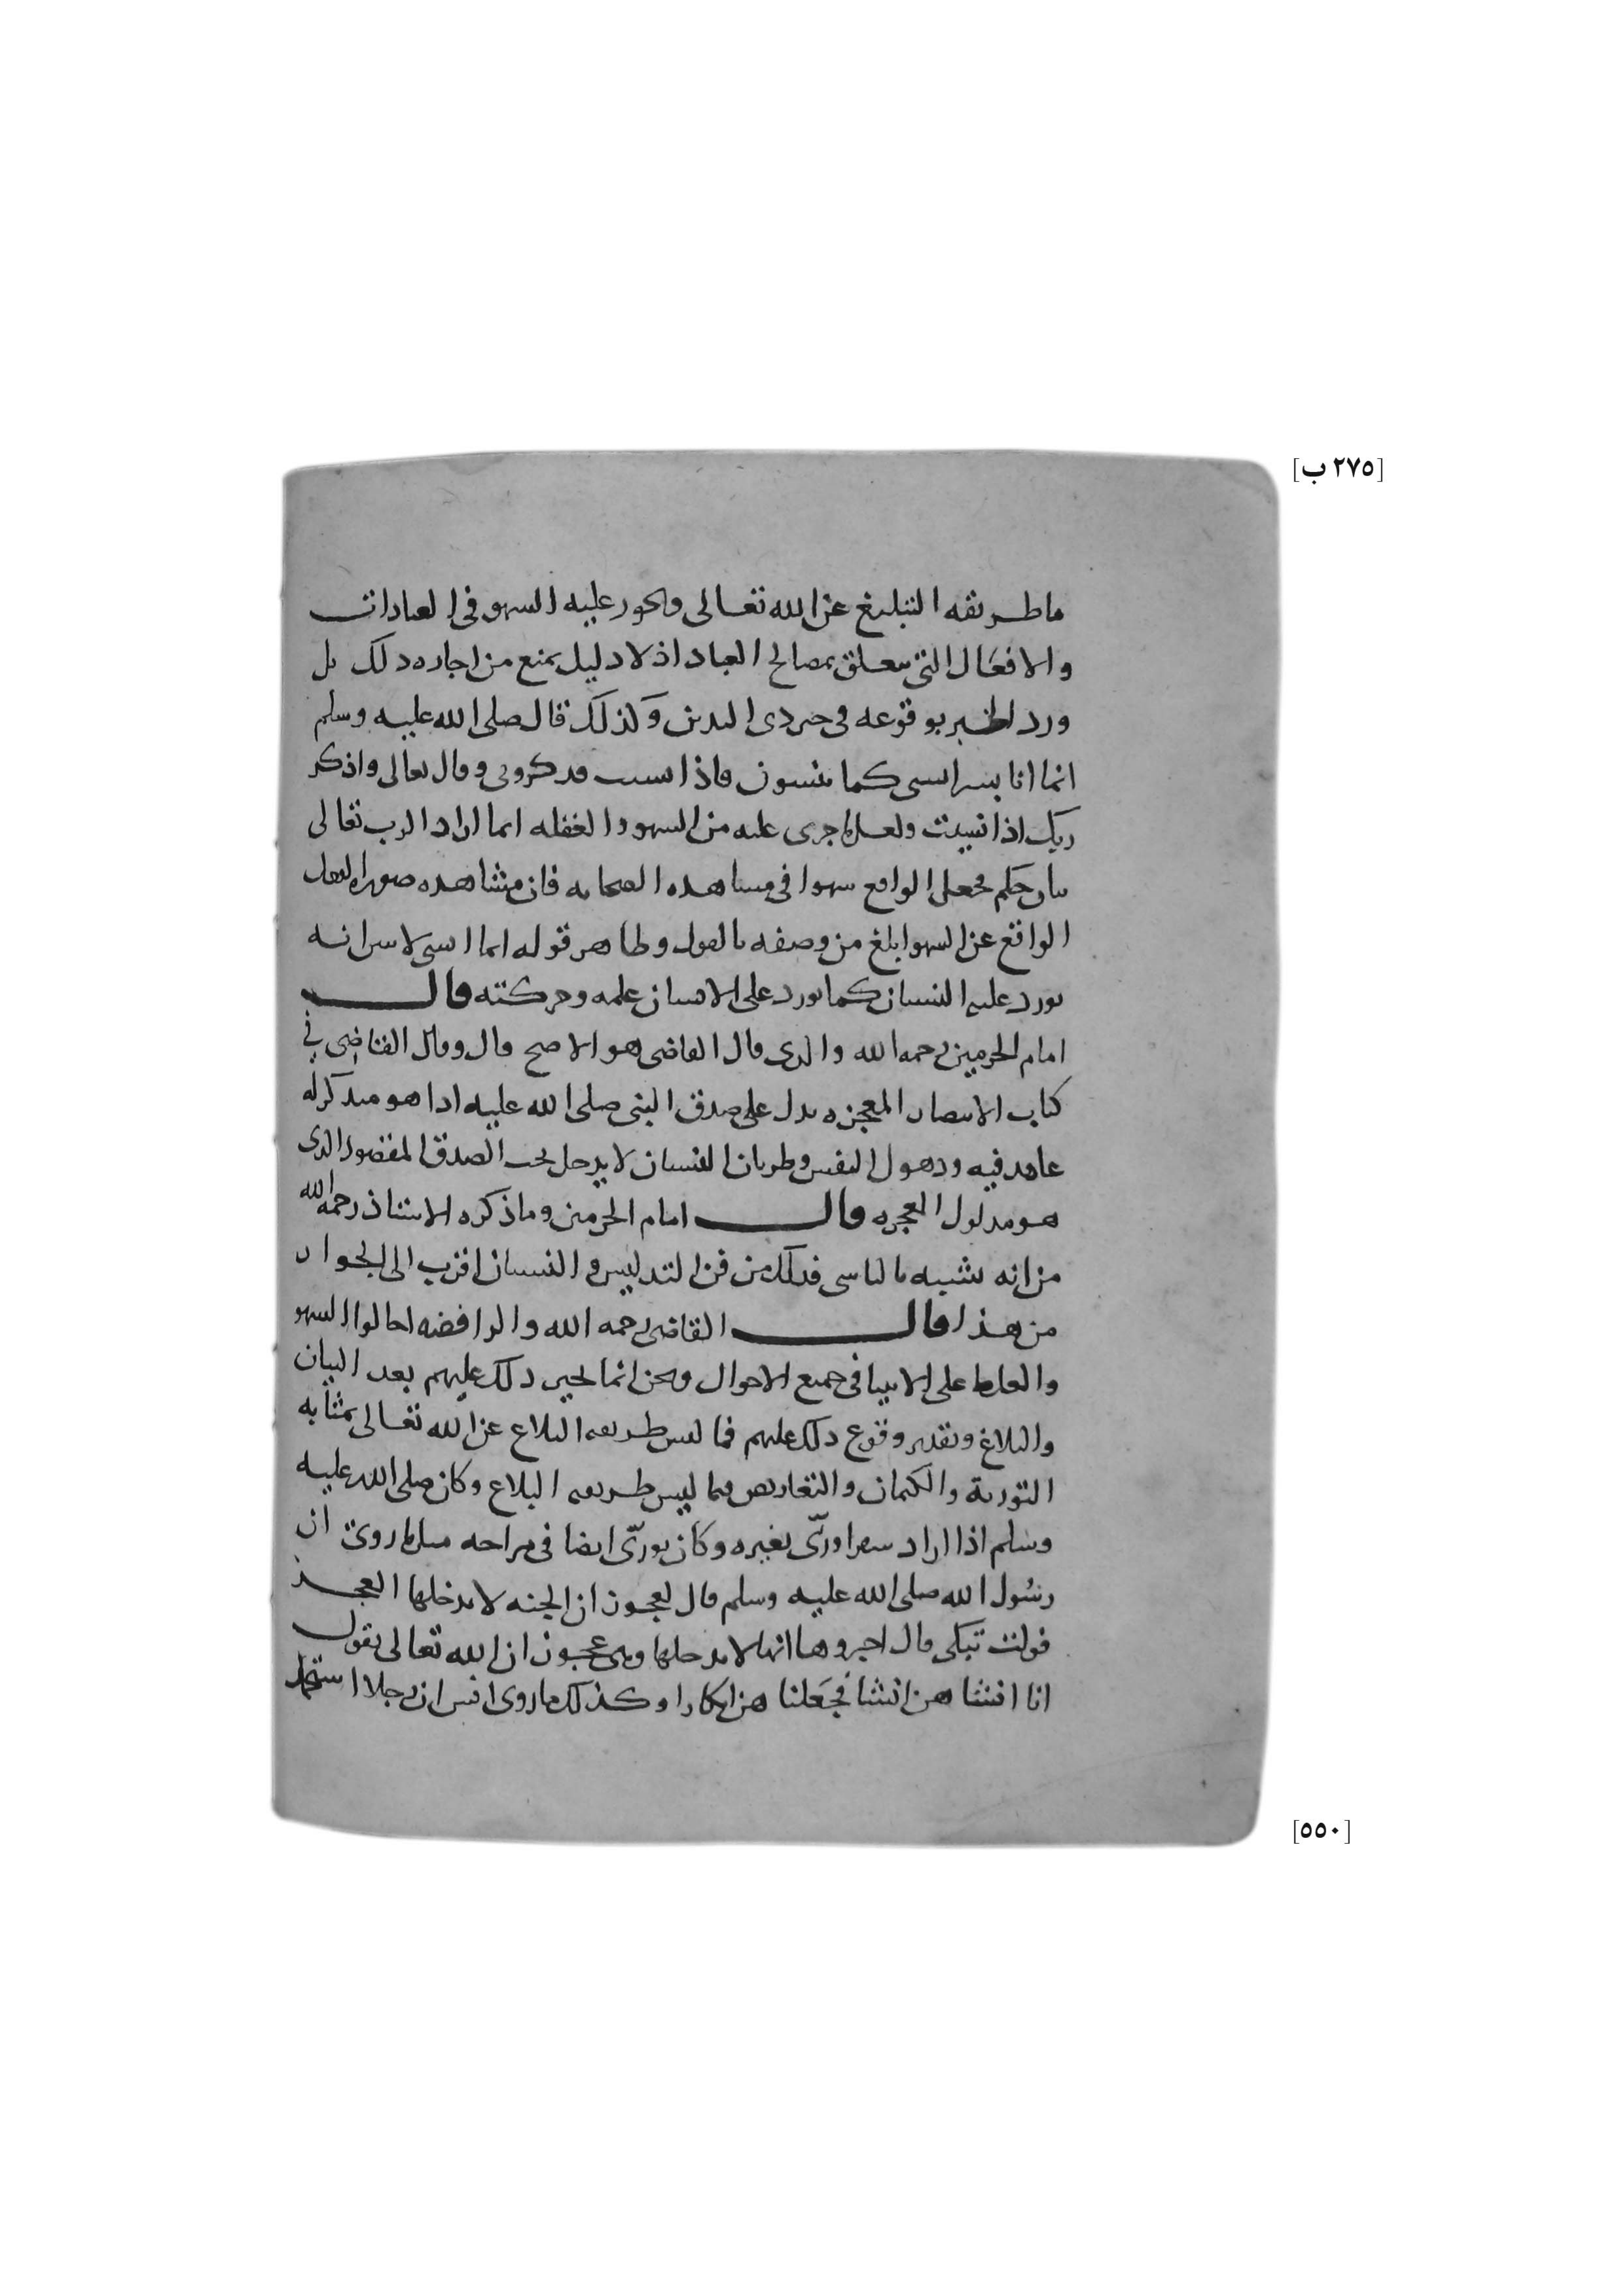 [٢٧٥ ب]
ما طريقه التبليغ عن الله تعالى ويجوز عليه السهو في العبادات
والافعال التي تتعلق بمصالح العباد اذ لا دليل يمنع من اجازه ذلك بل
ورد الخبر بوقوعه في خبر ذي اليدين وَلذلك قال صلى الله عليه وسلم
انما انا بشر انسى كما تنسون فاذا نسيت فذكروني وقال تعالى واذكر
ربك اذا نسيت ولعل ما جرى عليه من السهو والغفله انما اراد الرب تعالى
بيان حكم فجعل الواقع سهوا في مشاهده الصحابه فان مشاهده صوره الفعل
الواقع عن السهو ابلغ من وصفه بالقول وظاهر قوله انما انسى لاسن انه
يورد عليه النسيان كما يورد على الانسان علمه وحركته قال
امام الحرمين رحمه الله والذي قال القاضي هو الاصح قال وقال القاضي في
كتاب الانتصار المعجزه تدل على صدق النبي صلى الله عليه اذا هو متذكر له
عامد فيه وذهول النفس وطريان النسيان لا يدخل تحت الصدق المقصود الذي
هو مدلول المعجزه قال امام الحرمين وما ذكره الاستاذ رحمه الله
من انه تشبه بالناسي فذلك من فن التدليس والنسيان اقرب الى الجواز
من هذا قال القاضي رحمه الله والرافضه احالوا السهو
والغلط على الانبيا في جميع الاحوال ونحن انما نجيز ذلك عليهم بعد البيان
والبلاغ وتقدير وقوع ذلك عليهم فما ليس طريقه البلاغ عن الله تعالى بمثابه
التورية والكتمان والتعاريض فيما ليس طريقه البلاغ وكان صلى الله عليه
وسلم اذا اراد سفرا ورّى بغيره وكان يورّي ايضا في مزاحه مثل ما روي ان
رسُول الله صلى الله عليه وسلم قال لعجوز ان الجنه لا يدخلها العجز
فولت تبكي قال اخبروها انها لا تدخلها وهي عجوز ان الله تعالى يقول
انا انشاهن انشا فجَعلنا هن ابكارا وكذلك ما روى انس ان رجلا استحمل
[٥٥٠]